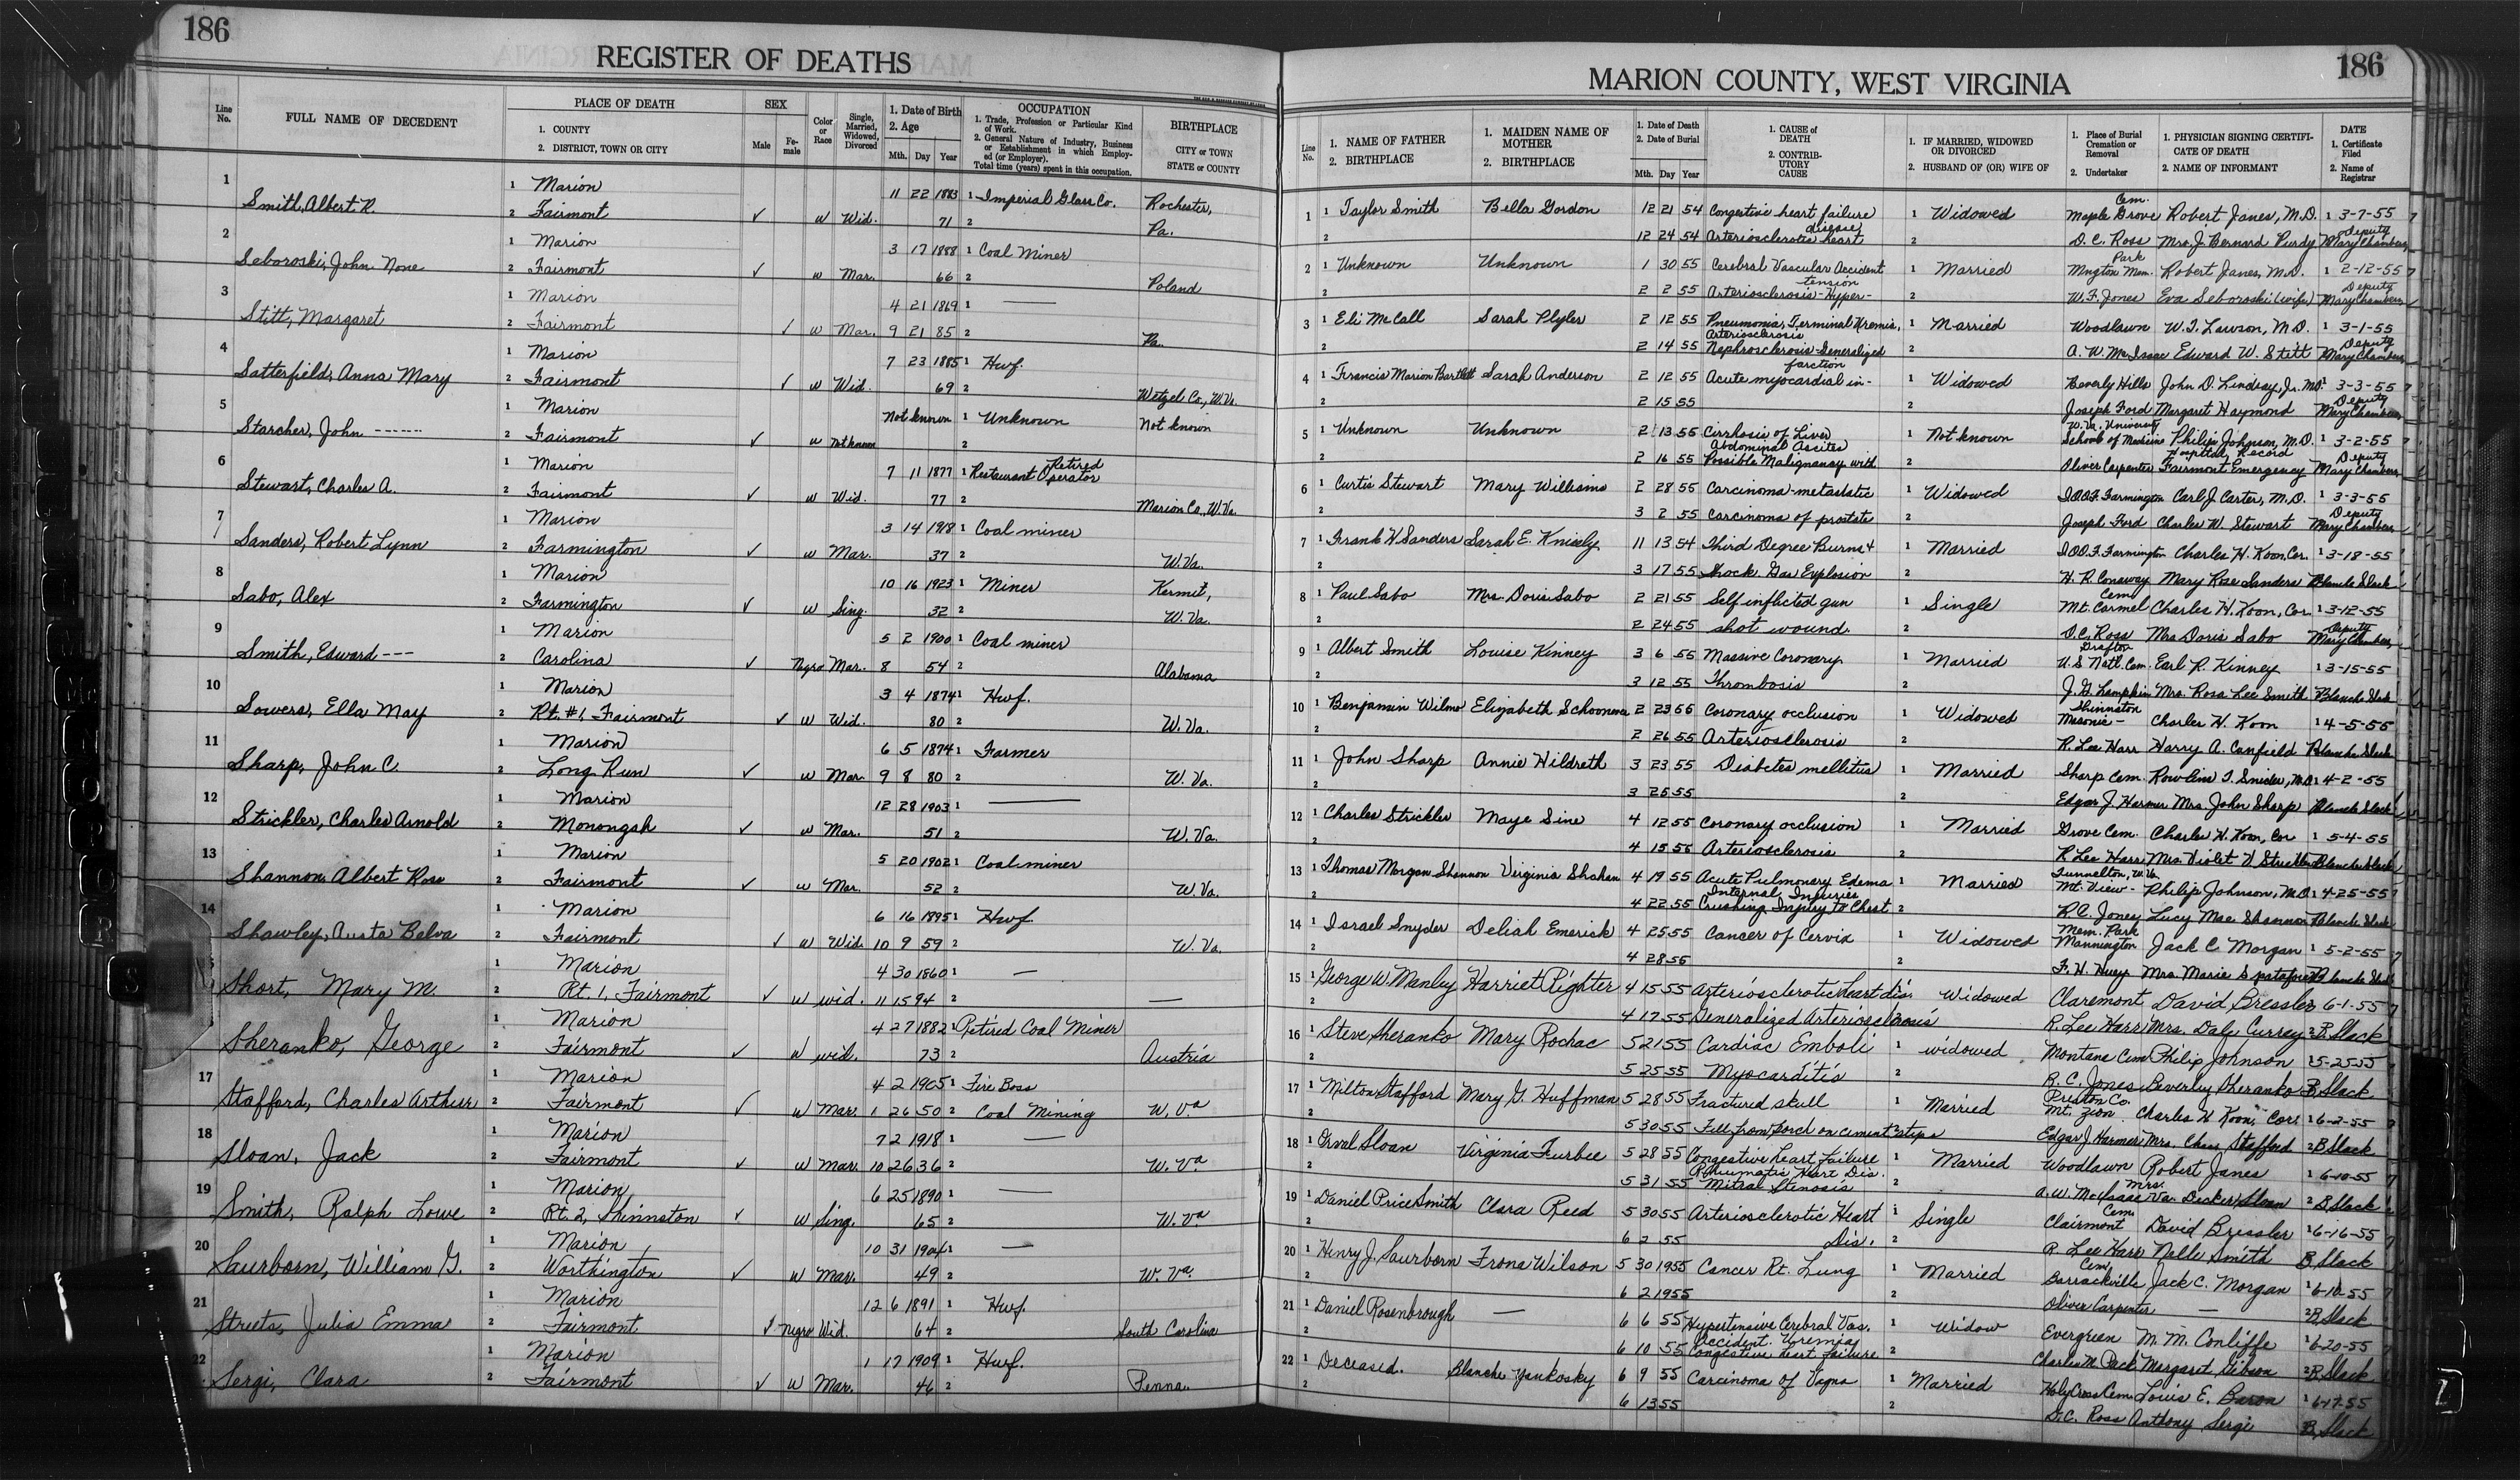 186
REGISTER OF DEATHS
Line No.
FULL NAME OF DECEDENT
PLACE OF DEATH
1. COUNTY
2. DISTRICT, TOWN OR CITY
SEX
Male
Female
Color or Race
Single, Married, Widowed, Divorced
1. Date of Birth
2. Age
Mth. Day Year
OCCUPATION
1. Trade, Profession or Particular Kind of Work.
2. General Nature of Industry, Business or Establishment in which Employed (or Employer).
Total time (years) spent in this occupation.
BIRTHPLACE
CITY or TOWN
STATE or COUNTY
1 Smith, Albert R. 1 Marion 11 22 1883 1 Imperial Glass Co. Rochester,
2 Fairmont ✓ w Wid. 71 2 Pa.
2 Seboroski, John None 1 Marion 3 17 1888 1 Coal Miner
2 Fairmont ✓ w Mar. 66 2 Poland
3 Stitt, Margaret 1 Marion 4 21 1869 1 —
2 Fairmont ✓ w Mar. 9 21 85 2 Pa.
4 Satterfield, Anna Mary 1 Marion 7 23 1885 1 Hwf.
2 Fairmont ✓ w Wid. 69 2 Wetzel Co., W.Va.
5 Starcher, John ------ 1 Marion Not known 1 Unknown Not known
2 Fairmont ✓ w Not known 2
6 Stewart, Charles A. 1 Marion 7 11 1877 1 Restaurant Operator Retired
2 Fairmont ✓ w Wid. 77 2 Marion Co., W.Va.
7 Sanders, Robert Lynn 1 Marion 3 14 1918 1 Coal miner
2 Farmington ✓ w Mar. 37 2 W.Va.
8 Sabo, Alex 1 Marion 10 16 1923 1 Miner Kermit,
2 Farmington ✓ w Sing. 32 2 W.Va.
9 Smith, Edward --- 1 Marion 5 2 1900 1 Coal miner
2 Carolina ✓ Negro Mar. 8 54 2 Alabama
10 Sowers, Ella May 1 Marion 3 4 1874 1 Hwf.
2 Rt. #1, Fairmont ✓ w Wid. 80 2 W.Va.
11 Sharp, John C. 1 Marion 6 5 1874 1 Farmer
2 Long Run ✓ w Mar. 9 8 80 2 W.Va.
12 Strickler, Charles Arnold 1 Marion 12 28 1903 1 —
2 Monongah ✓ w Mar. 51 2 W.Va.
13 Shannon, Albert Rose 1 Marion 5 20 1902 1 Coal miner
2 Fairmont ✓ w Mar. 52 2 W.Va.
14 Shawley, Austa Belva 1 Marion 6 16 1895 1 Hwf.
2 Fairmont ✓ w Wid. 10 9 59 2 W.Va.
Short, Mary M. 1 Marion 4 30 1860 1 —
2 Rt. 1, Fairmont ✓ w wid. 11 15 94 2 —
Sheranko, George 1 Marion 4 27 1882 1 Retired Coal Miner
2 Fairmont ✓ W wid. 73 2 Austria
17 Stafford, Charles Arthur 1 Marion 4 2 1905 1 Fire Boss
2 Fairmont ✓ W Mar. 1 26 50 2 Coal Mining W.Va
18 Sloan, Jack 1 Marion 7 2 1918 1 —
2 Fairmont ✓ W Mar. 10 26 36 2 W.Va
19 Smith, Ralph Lowe 1 Marion 6 25 1890 1 —
2 Rt. 2, Shinnston ✓ W Sing. 65 2 W.Va
20 Saurborn, William G. 1 Marion 10 31 1904 1 —
2 Worthington ✓ W Mar. 49 2 W.Va.
21 Streets, Julia Emma 1 Marion 12 6 1891 1 Hwf.
2 Fairmont ✓ Negro Wid. 64 2 South Carolina
22 Sergi, Clara 1 Marion 1 17 1909 1 Hwf.
2 Fairmont ✓ W Mar. 46 2 Penna.
186
MARION COUNTY, WEST VIRGINIA
Line No.
1. NAME OF FATHER
2. BIRTHPLACE
1. MAIDEN NAME OF MOTHER
2. BIRTHPLACE
1. Date of Death
2. Date of Burial
Mth. Day Year
1. CAUSE of DEATH
2. CONTRIBUTORY CAUSE
1. IF MARRIED, WIDOWED OR DIVORCED
2. HUSBAND OF (OR) WIFE OF
1. Place of Burial Cremation or Removal
2. Undertaker
1. PHYSICIAN SIGNING CERTIFICATE OF DEATH
2. NAME OF INFORMANT
DATE
1. Certificate Filed
2. Name of Registrar
1 1 Taylor Smith Bella Gordon 12 21 54 Congestive heart failure 1 Widowed Maple Grove Cem. Robert Janes, M.D. 1 3-7-55
2 12 24 54 Arteriosclerotic heart disease 2 D.C. Ross Mrs. J. Bernard Purdy 2 Mary Chambers, Deputy
2 1 Unknown Unknown 1 30 55 Cerebral Vascular Accident 1 Married Mngton Mem. Park Robert Janes, M.D. 1 2-12-55
2 2 2 55 Arteriosclerosis-Hypertension 2 W.F. Jones Eva Seboroski (wife) 2 Mary Chambers, Deputy
3 1 Eli McCall Sarah Plyler 2 12 55 Pneumonia, Terminal Uremia, 1 Married Woodlawn W.T. Lawson, M.D. 1 3-1-55
2 2 14 55 Nephrosclerosis-Generalized Arteriosclerosis 2 A.W. McIsaac Edward W. Stitt 2 Mary Chambers, Deputy
4 1 Francis Marion Bartlett Sarah Anderson 2 12 55 Acute myocardial infarction 1 Widowed Beverly Hills John D. Lindsay, Jr. M.D. 1 3-3-55
2 2 15 55 2 Joseph Ford Margaret Haymond Mary Chambers, Deputy
5 1 Unknown Unknown 2 13 55 Cirrhosis of Liver 1 Not known W.Va. University School of Medicine Philip Johnson, M.D. 1 3-2-55
2 2 16 55 Possible Malignancy with Abdominal Ascites 2 Oliver Carpenter Fairmont Emergency Hospital Record Mary Chambers, Deputy
6 1 Curtis Stewart Mary Williams 2 28 55 Carcinoma-metastatic 1 Widowed I.O.O.F. Farmington Carl J. Carter, M.D. 1 3-3-55
2 3 2 55 Carcinoma of prostate 2 Joseph Ford Charles W. Stewart Mary Chambers, Deputy
7 1 Frank W Sanders Sarah E. Knisely 11 13 54 Third Degree Burns & 1 Married I.O.O.F. Farmington Charles H. Koon, Cor. 1 3-18-55
2 3 17 55 Shock. Gas Explosion 2 H.R. Conaway Mary Rose Sanders 2 Blanche Slack
8 1 Paul Sabo Mrs. Doris Sabo 2 21 55 Self inflicted gun 1 Single Mt. Carmel Cem. Charles H. Koon, Cor. 1 3-12-55
2 2 24 55 shot wound. 2 D.C. Ross Mrs Doris Sabo Mary Chambers, Deputy
9 1 Albert Smith Louise Kinney 3 6 55 Massive Coronary 1 Married Grafton U.S Natl. Cem. Earl R. Kinney 1 3-15-55
2 3 12 55 Thrombosis 2 J.G. Lampkin Mrs. Rosa Lee Smith 2 Blanche Slack
10 1 Benjamin Wilmo Elizabeth Schoonover 2 23 55 Coronary occlusion 1 Widowed Shinnston Masonic - Charles H. Koon 1 4-5-55
2 2 26 55 Arteriosclerosis 2 R. Lee Harr Harry A. Canfield Blanche Slack
11 1 John Sharp Annie Hildreth 3 23 55 Diabetes mellitus 1 Married Sharp Cem. Rowlins T. Snider, M.D. 1 4-2-55
2 3 25 55 2 Edgar J. Harmer Mrs John Sharp Blanche Slack
12 1 Charles Strickler Maye Sine 4 12 55 Coronary occlusion 1 Married Grove Cem. Charles H. Koon, Cor 1 5-4-55
2 4 15 55 Arteriosclerosis 2 R Lee Harr Mrs. Violet V Strickler Blanche Slack
13 1 Thomas Morgan Shannon Virginia Shahan 4 19 55 Acute Pulmonary Edema 1 Married Tunnelton, W.Va. Mt. View - Philip Johnson, M.D. 1 4-25-55
2 4 22 55 Internal Injuries Crushing Injury to Chest 2 R.C. Jones Lucy Mae Shannon 2 Blanche Slack
14 1 Israel Snyder Deliah Emerick 4 25 55 Cancer of Cervix 1 Widowed Mem. Park Mannington Jack C. Morgan 1 5-2-55
2 4 28 55 2 F.H. Huey Mrs. Marie Spatafore 2 Blanche Slack
15 1 George W. Manley Harriet Righter 4 15 55 Arteriosclerotic heart dis. 1 Widowed Claremont David Bressler 6-1-55
2 4 17 55 Generalized Arteriosclerosis R. Lee Harr Mrs. Dale Currey 2 B. Slack
16 1 Steve Sheranko Mary Rochac 5 21 55 Cardiac Emboli 1 widowed Montana Cem Philip Johnson 1 5-25-55
2 5 25 55 Myocarditis 2 R.C. Jones Beverley Sheranko B. Slack
17 1 Milton Stafford Mary G. Huffman 5 28 55 Fractured skull 1 Married Preston Co. Mt. Zion Charles H Koon, Cor. 1 6-2-55
2 5 30 55 Fell from porch on cement steps Edgar J. Harmer Mrs. Chas. Stafford 2 B Slack
18 1 Orval Sloan Virginia Furbee 5 28 55 Congestive heart failure 1 Married Woodlawn Robert Janes 1 6-10-55
2 5 31 55 Rheumatic Heart Dis. Mitral Stenosis 2 A.W. McIsaac Mrs. Va. Decker Sloan 2 B. Slack
19 1 Daniel Price Smith Clara Reed 5 30 55 Arteriosclerotic Heart 1 Single Clairmont Cem. David Bressler 1 6-16-55
2 6 2 55 Dis. 2 R Lee Harr Nelle Smith B. Slack
20 1 Henry J. Saurborn Frona Wilson 5 30 1955 Cancer Rt. Lung 1 Married Barrackville Cem. Jack C. Morgan 1 6-10-55
2 6 2 1955 2 Oliver Carpenter — 2 B. Slack
21 1 Daniel Rosenbrough — 6 6 55 Hypertensive Cerebral Vas. 1 Widow Evergreen M.M. Conliffe 1 6-20-55
2 6 10 55 Accident. Uremia Congestive heart failure 2 Charles M. Pack Margaret Gibson 2 B. Slack
22 1 Deceased. Blanche Yankosky 6 9 55 Carcinoma of Vagna 1 Married Holy Cross Cem. Louis E. Baron 1 6-17-55
2 6 13 55 2 D.C. Ross Anthony Sergi B. Slack